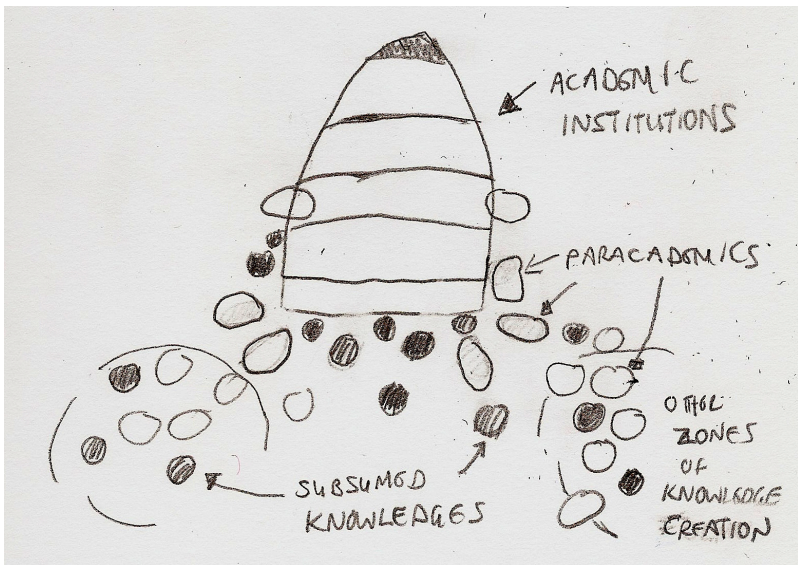 ACADEMIC
INSTITUTIONS
PARACADEMICS
OTHER
ZONES
OF
KNOWLEDGE
CREATION
SUBSUMED
KNOWLEDGES